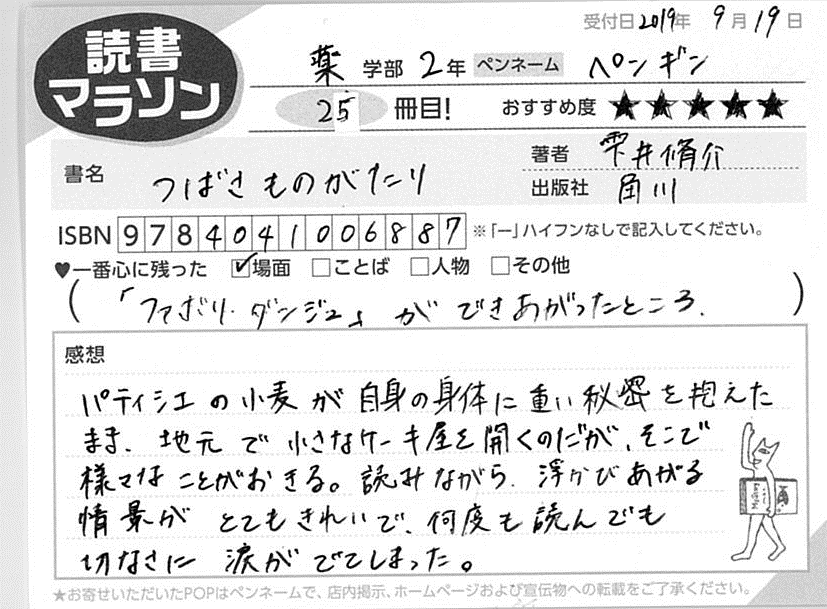 受付日 2019年 9月 19日
読書
マラソン
薬 学部 2年 ペンネーム ペンギン
25 冊目! おすすめ度 ★★★★★
書名 つばさものがたり
著者 雫井脩介
出版社 角川
ISBN 9784041006887 ※「ー」ハイフンなしで記入してください。
♥一番心に残った ☑場面 □ことば □人物 □その他
(「ファボリ・ダンジュ」ができあがったところ.)
感想
パティシエの小麦が自身の身体に重い秘密を抱えた
まま、地元で小さなケーキ屋を開くのだが、そこで
様々なことがおきる。読みながら、浮かびあがる
情景がとてもきれいで、何度も読んでも
切なさに涙がでてしまった。
★お寄せいただいたPOPはペンネームで、店内掲示、ホームページおよび宣伝物への転載をご了承ください。